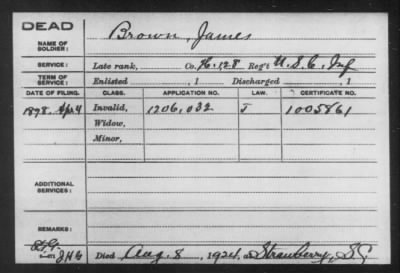 DEAD
NAME OF SOLDIER: Brown, James
SERVICE: Late rank, Co. H, 128 Reg't U.S.C. Inf
TERM OF SERVICE: Enlisted , 1 Discharged , 1
DATE OF FILING. CLASS. APPLICATION NO. LAW. CERTIFICATE NO.
1898. Apr 4 Invalid, 1206,032 J 1005861
Widow,
Minor,
ADDITIONAL SERVICES:
REMARKS:
Died Aug. 8, 1924, at Strawberry, S.C.